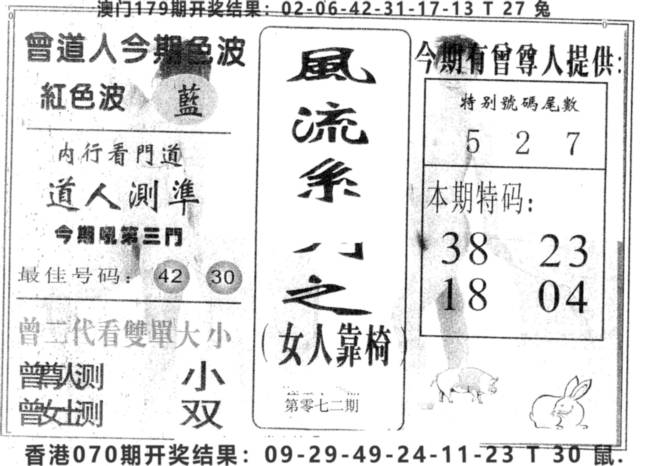 澳门179期开奖结果：02-06-42-31-17-13 T 27 兔
曾道人今期色波
紅色波 藍
内行看門道
道人測準
今期吼第三門
最佳号码： 42 30
曾二代看雙單大小
曾尊人测 小
曾女士测 双
風
流
系
之
（女人靠椅）
第零七二期
今期有曾尊人提供：
特别號碼尾數
5 2 7
本期特码：
38 23
18 04
香港070期开奖结果：09-29-49-24-11-23 T 30 鼠.